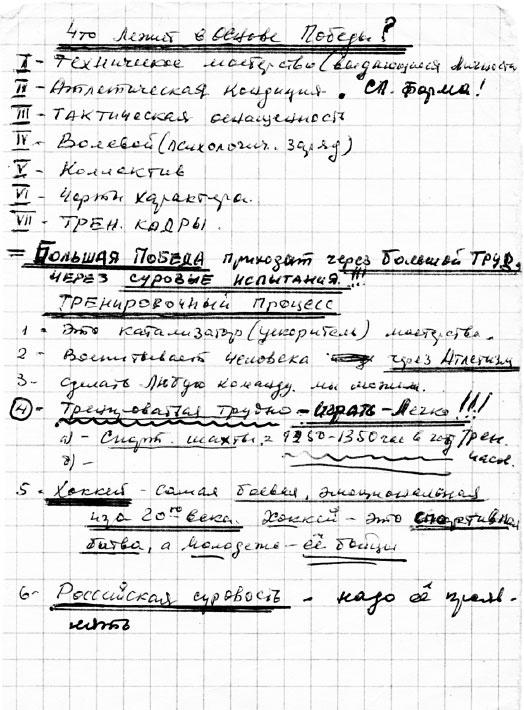 Что лежит в основе Победы?
I - Техническое мастерство (выдающиеся личности
II - Атлетическая кондиция. Сп. Форма!
III - Тактическая оснащенность
IV - Волевой (психологич. заряд)
V - Коллектив
VI - Черты характера.
VII - ТРЕН. КАДРЫ.
= БОЛЬШАЯ ПОБЕДА приходит через БОЛЬШОЙ ТРУД,
ЧЕРЕЗ СУРОВЫЕ ИСПЫТАНИЯ!!!
ТРЕНИРОВОЧНЫЙ ПРОЦЕСС
1 - Это катализатор (ускоритель) мастерства.
2 - Воспитывает человека через Атлетизм
3 - Сделать любую команду мы можем.
4 - Тренироваться трудно - играть - легко!!!
а) - Спорт. шахты, 1350 в год трен.
часов.
б) -
5 - Хоккей - самая боевая, эмоциональная
из 20го века. Хоккей - это спортивная
битва, а молодежь - её бойцы
6 - Российская суровость - надо её прояв-
лять